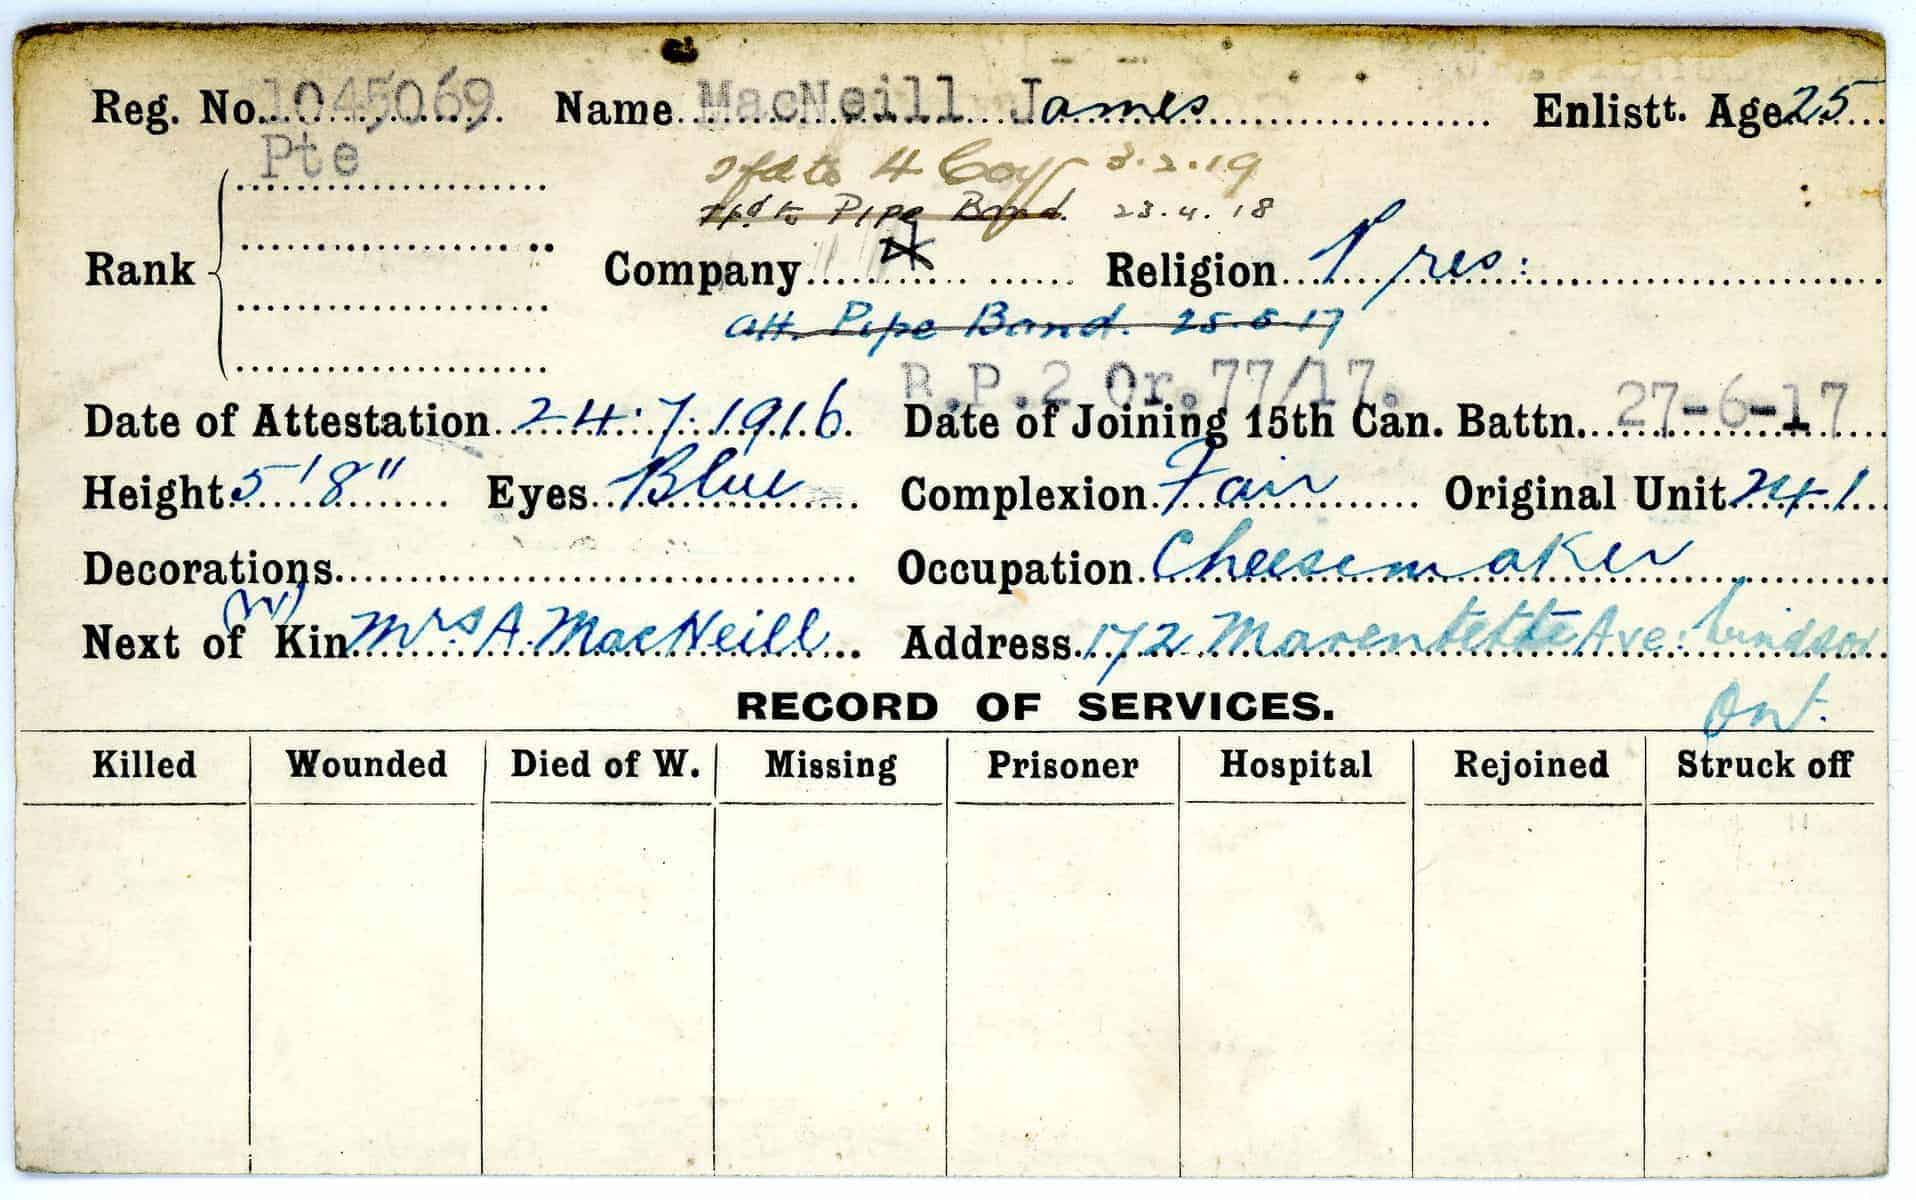 Reg. No. 1045069 Name MacNeill James Enlistt. Age 25
Pte
Tfd to 4 Coy 3.2.19
Tfd to Pipe Band. 23.4.18
Rank Company 4 Religion Pres:
att. Pipe Band. 17
R.P.2 Or.77/17.
Date of Attestation 24.7.1916. Date of Joining 15th Can. Battn. 27-6-17
Height 5'8" Eyes Blue Complexion Fair Original Unit 241
Decorations Occupation Cheesemaker
(W)
Next of Kin Mrs A. MacNeill Address 172 Marentette Ave: Windsor
Ont.
RECORD OF SERVICES.
Killed Wounded Died of W. Missing Prisoner Hospital Rejoined Struck off